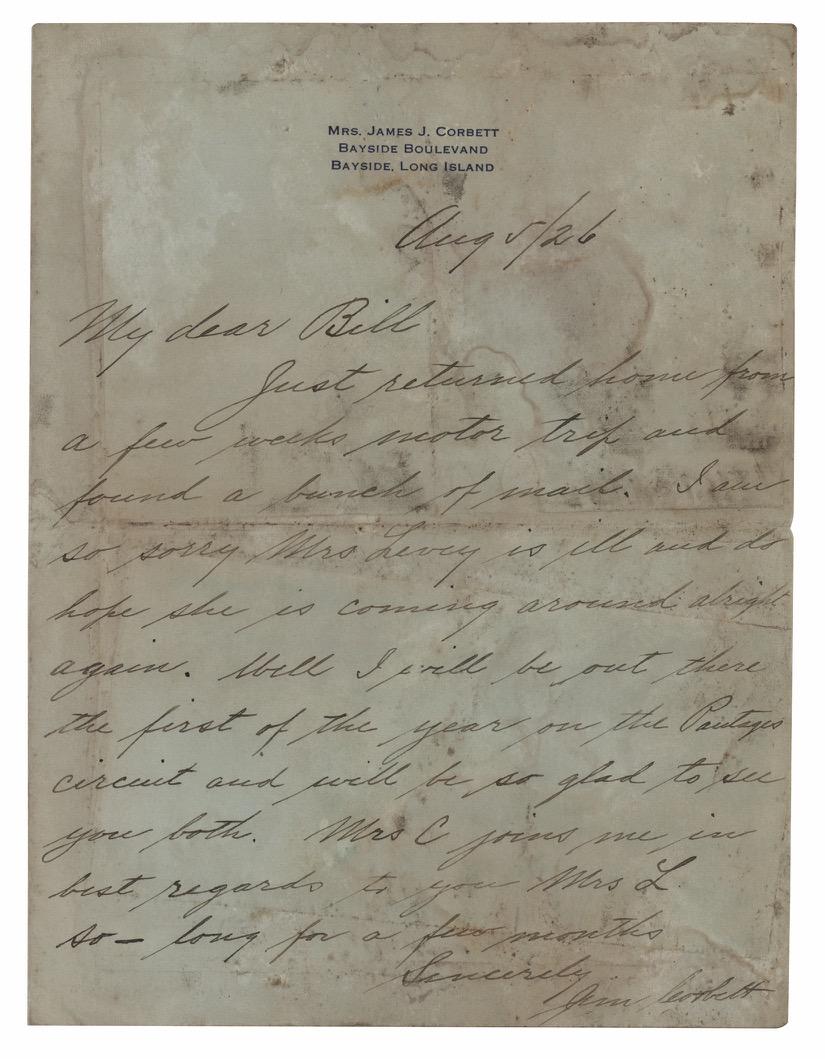 MRS. JAMES J. CORBETT
BAYSIDE BOULEVAND
BAYSIDE, LONG ISLAND
Aug 5/26
My dear Bill
Just returned home from
a few weeks motor trip and
found a bunch of mail. I am
so sorry Mrs Levey is ill and do
hope she is coming around alright
again. Well I will be out there
the first of the year on the Pantages
circuit and will be so glad to see
you both. Mrs C joins me in
best regards to you Mrs L
so- long for a few months
Sincerely
Jim Corbett